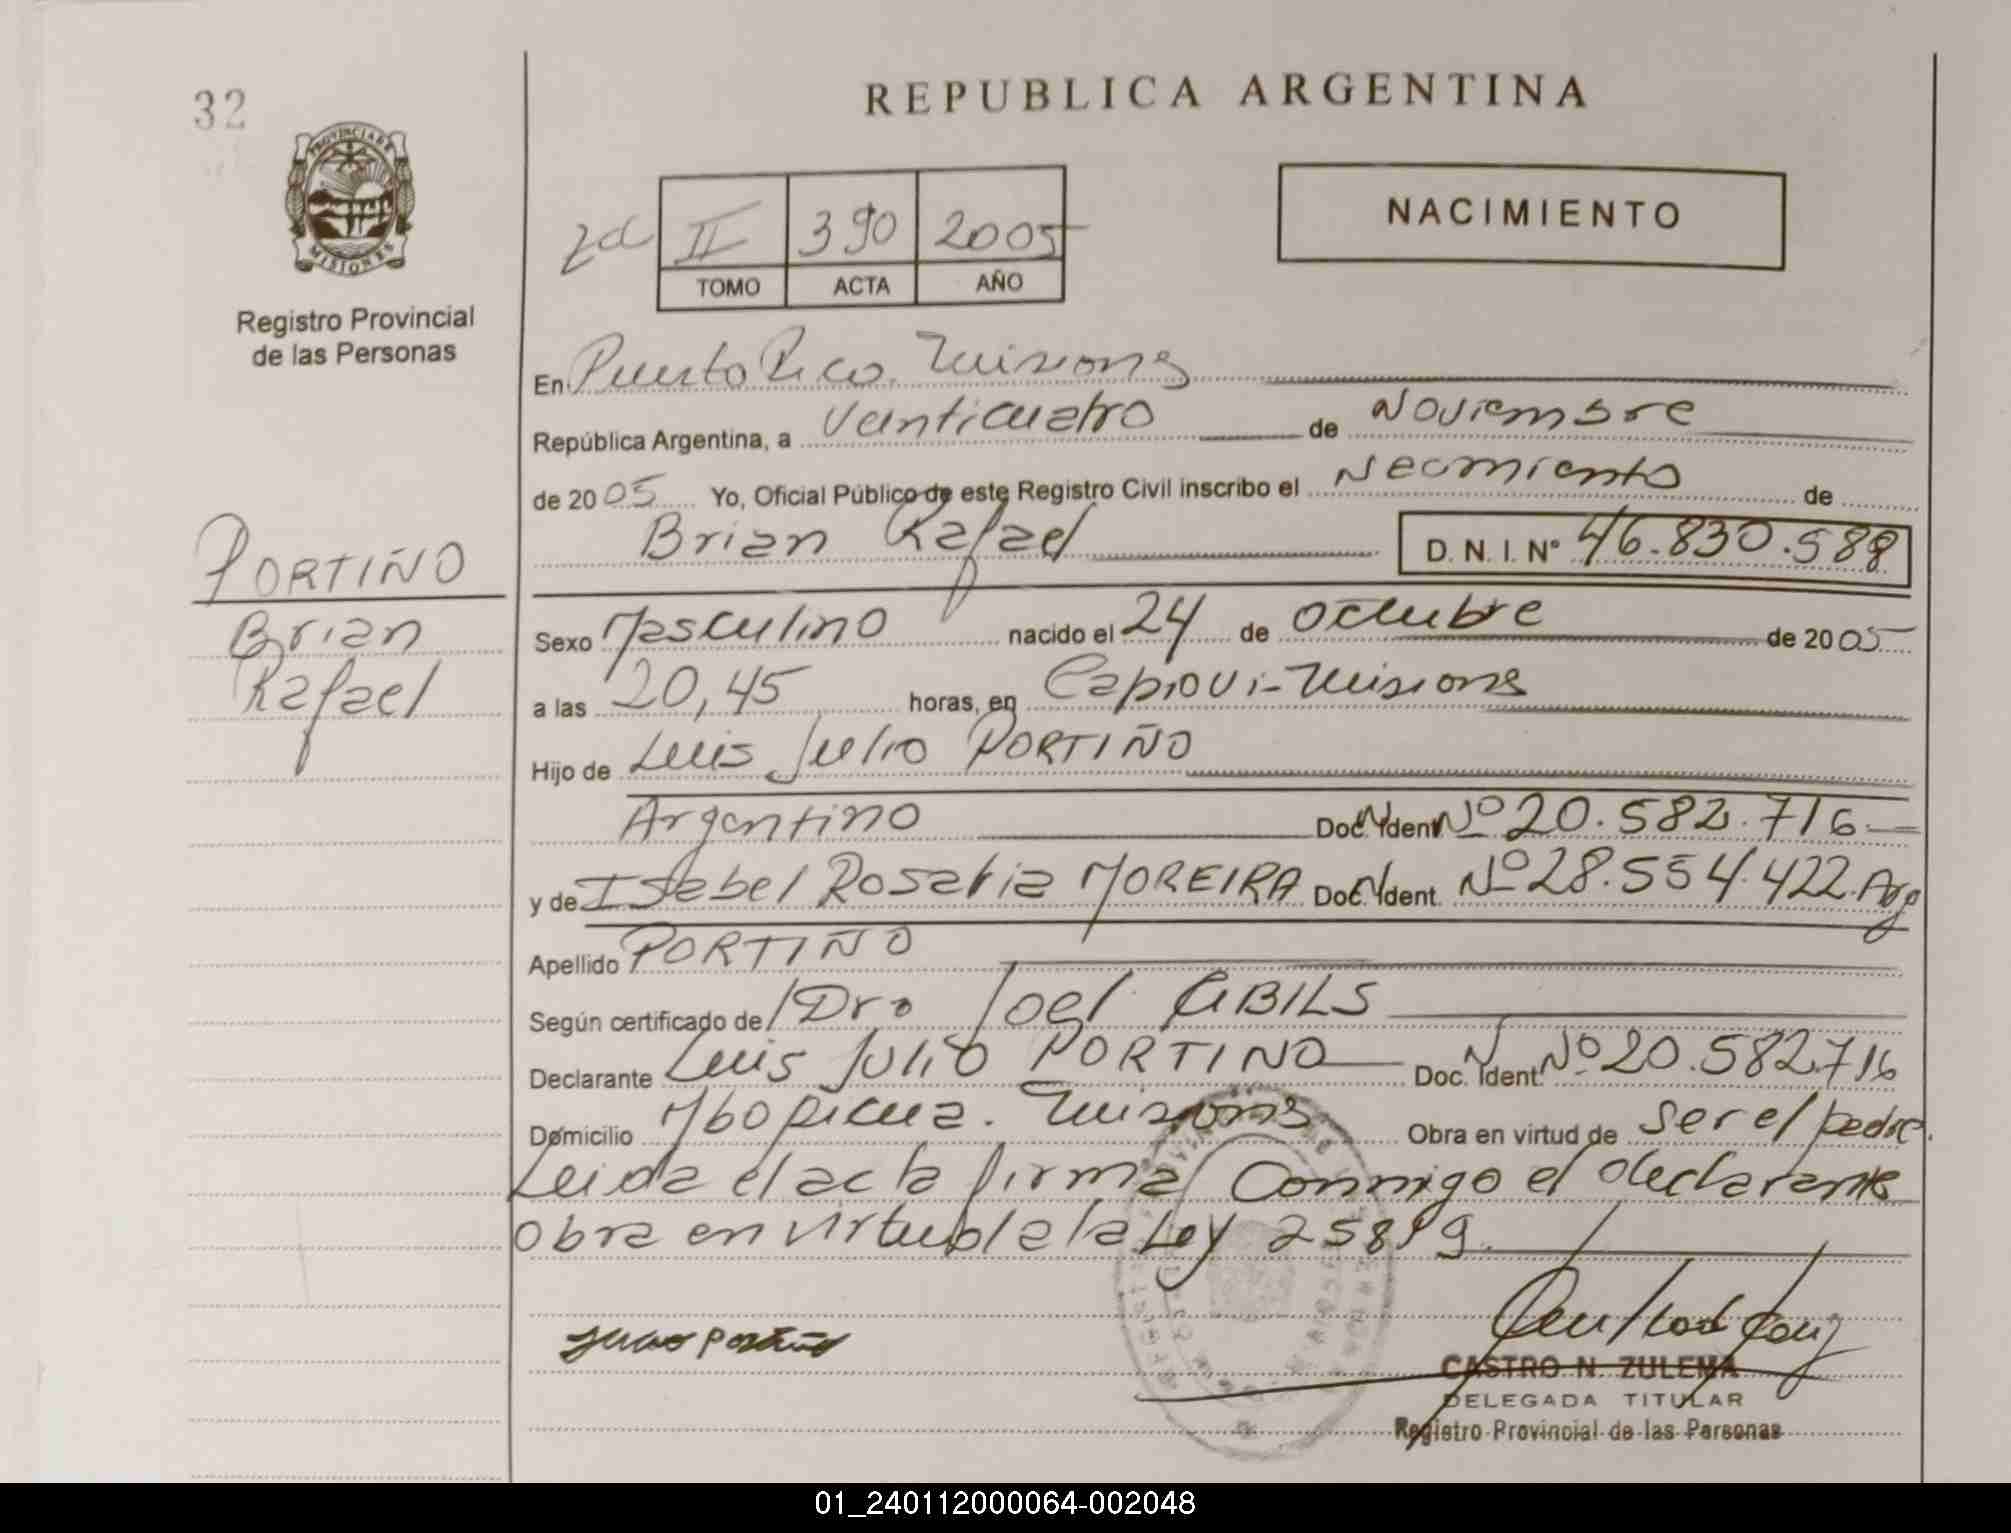 32
REPUBLICA ARGENTINA
PROVINCIA DE
MISIONES
Registro Provincial
de las Personas
NACIMIENTO
II 390 2005
TOMO ACTA AÑO
En Puerto Rico. Misiones
República Argentina, a Veinticuatro de Noviembre
de 2005 Yo, Oficial Público de este Registro Civil inscribo el Necimiento de
Brian Rafael D. N. I. Nº 46.830.588
PORTIÑO
Brian
Rafael
Sexo Masculino nacido el 24 de Octubre de 2005
a las 20,45 horas, en Capiovi-Misiones
Hijo de Luis Julio PORTIÑO
Argentino Doc. Ident Nº 20.582.716.
y de Isabel Rosalia MOREIRA Doc. Ident. Nº 28.554.422. Arg
Apellido PORTIÑO
Según certificado de Dro Joel
Declarante Luis Julio PORTIÑO Doc. Ident. Nº 20.582.716
Domicilio Mbopicua. Misiones Obra en virtud de ser el padre.
Leida el acta firma Conmigo el declarante
obra en virtud de la Ley 25819.
Julio Portiño
CASTRO N. ZULEMA
DELEGADA TITULAR
Registro Provincial de las Personas
01_240112000064-002048